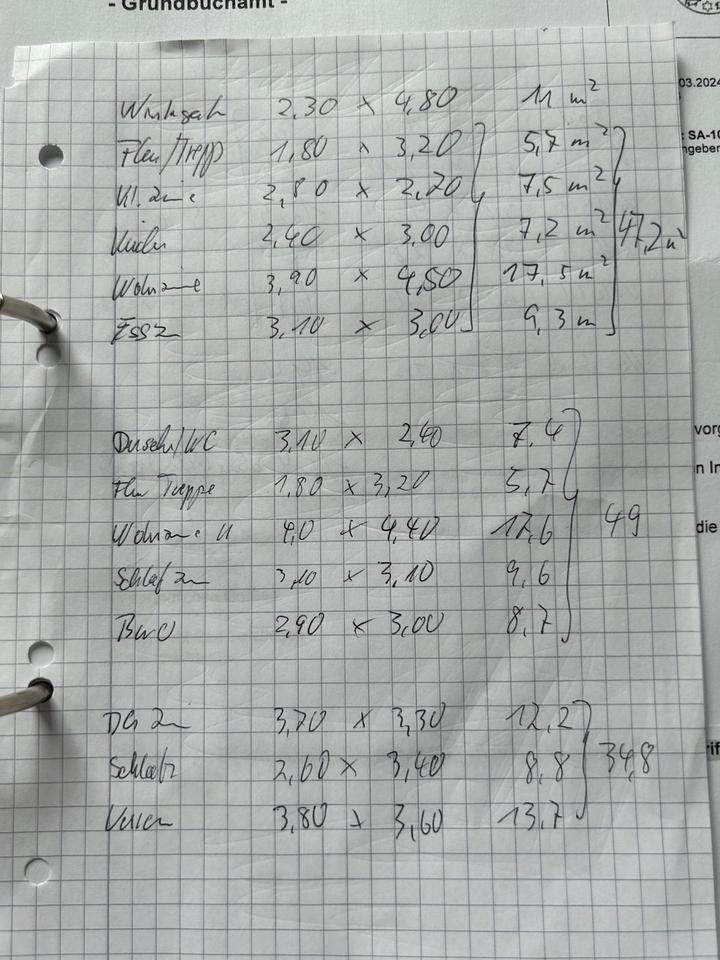 - Grundbuchamt -
03.2024
SA-10
ngeben
2,30 x 4,80 11 m²
Flur/Trepp 1,80 x 3,20 5,7 m²
Kl. 2,80 x 2,70 7,5 m²
2,40 x 3,00 7,2 m² 47,2 m²
3,90 x 4,50 17,5 m²
Essz 3,10 x 3,00 9,3 m
vorg
Dusch/WC 3,10 x 2,40 7,4
n In
Flur Treppe 1,80 x 3,20 5,7
4,0 x 4,40 17,6 49
die
Schlafzm 3,10 x 3,10 9,6
Büro 2,90 x 3,00 8,7
DG Zm 3,70 x 3,30 12,2
rif
Schlafz 2,60 x 3,40 8,8 34,8
3,80 x 3,60 13,7